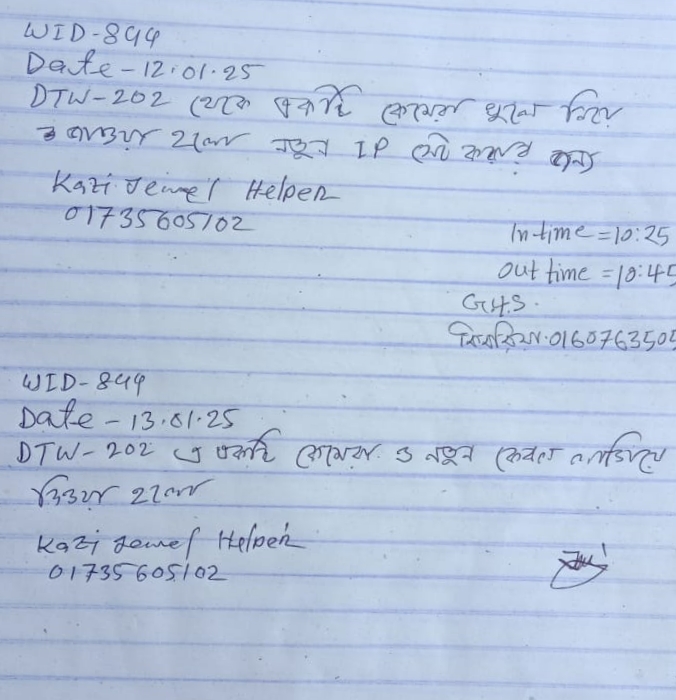 WID-844
Date - 12.01.25
DTW-202 থেকে একটি কেমেরা খুলে নিয়ে
যাওয়া হলো নতুন IP সেট করার জন্য
Kazi Jewel Helper
01735605102
In time = 10:25
Out time = 10:45
G.H.S.
0160763505
WID-844
Date - 13.01.25
DTW-202 এ একটি কেমেরা ও নতুন কেবল লাগিয়ে
দিওয়া হলো
Kazi Jewel Helper
01735605102